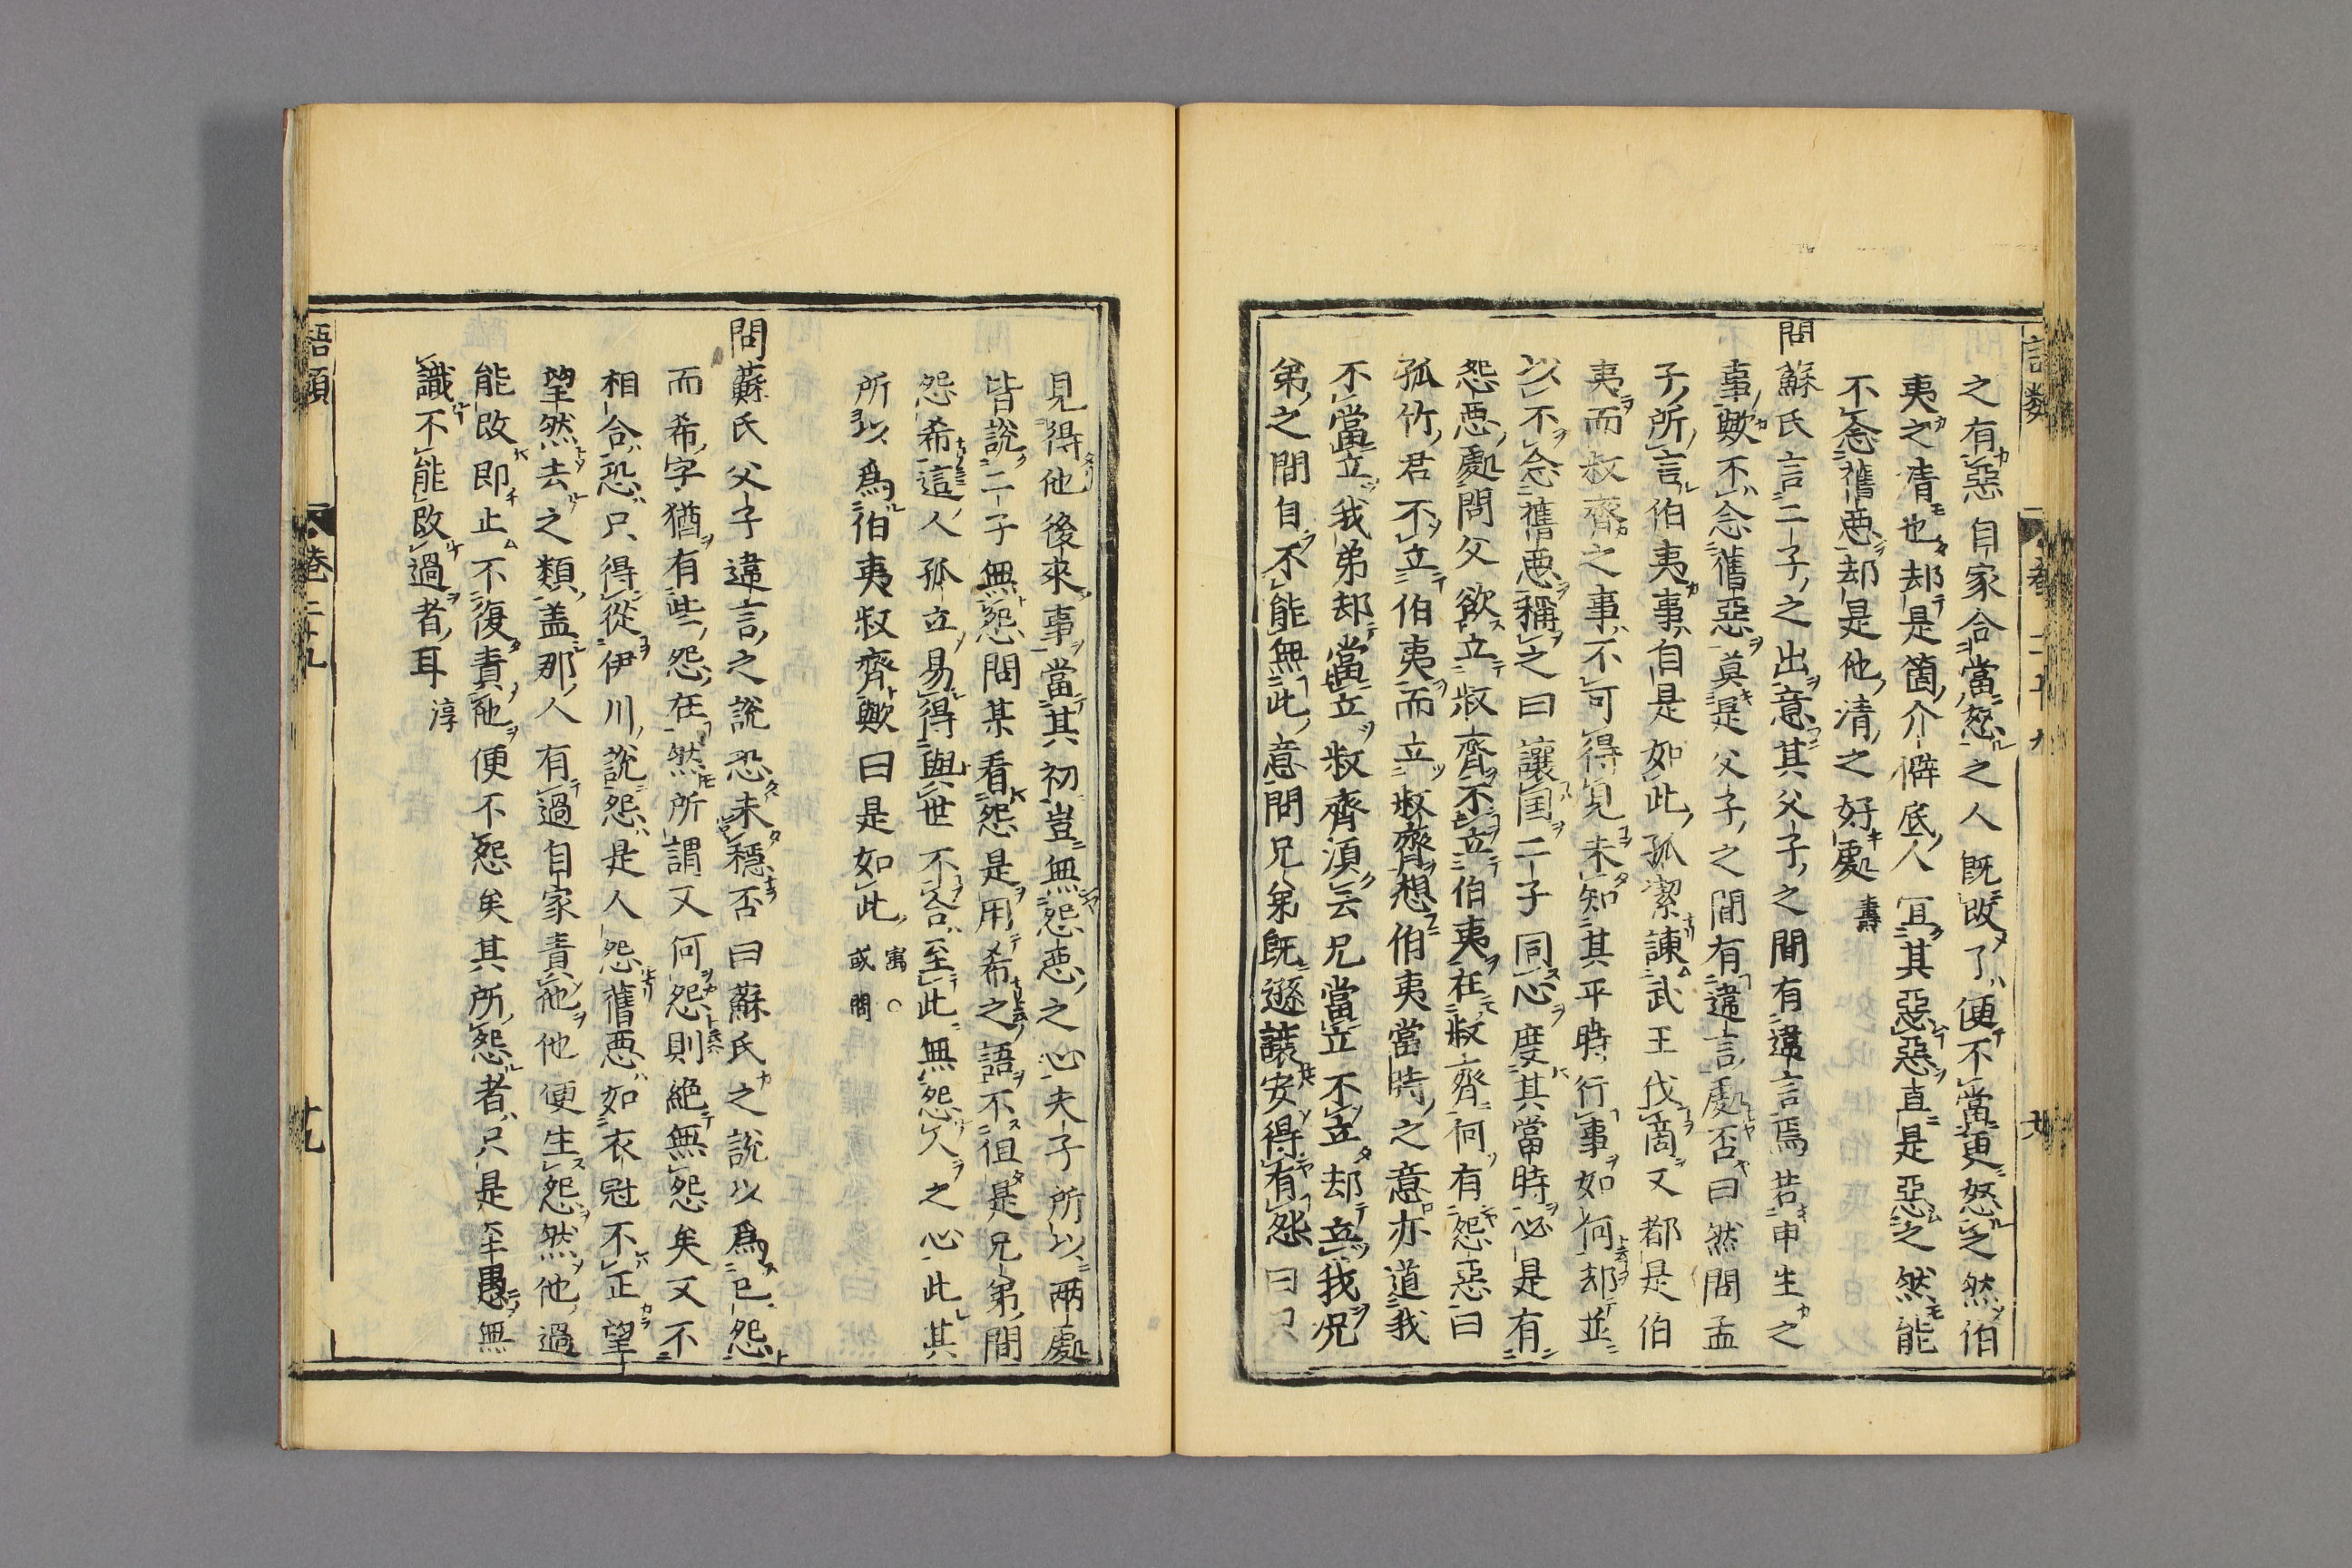 之有惡自家合當怒之人既改了便不當更怒之然伯
夷之清也却是箇介僻底人冝其惡惡直是惡之然能
不念舊悪却是他清之好處 壽
問蘇氏言二子之出意其父子之間有違言焉若申生之
事歟不念舊惡莫是父子之間有違言處否曰然問孟
子所言伯夷事自是如此孤潔諌武王伐商又都是伯
夷而叔齊之事不可得見未知其平時行事如何却並
以不念舊悪稱之曰讓国二子同心度其當時必是有
怨悪處問父欲立叔齊不立伯夷在叔齊何有怨惡曰
孤竹君不立伯夷而立叔齊想伯夷當時之意亦道我
不當立我弟却當立叔齊須云兄當立不立却立我兄
弟之間自不能無此意問兄弟既遜讓安得有怨曰只
見得他後來事當其初豈無怨悪之心夫子所以兩處
皆說二子無怨問某看怨是用希之語不徂是兄弟間
怨希這人孤立易得與世不合至此無怨人之心此其
所以爲伯夷叔齊歟曰是如此 寓○
或問
問蘇氏父子違言之說恐未穩否曰蘇氏之說以爲已怨
而希字猶有些怨在然所謂又何怨則絕無怨矣又不
相合恐只得從伊川說怨是人怨舊悪如衣冠不正望
望然去之類盖那人有過自家責他他便生怨然他過
能改即止不復責他便不怨矣其所怨者只是至愚無
識不能改過者耳 淳
語類 卷二十九 廿
語類 卷二十九